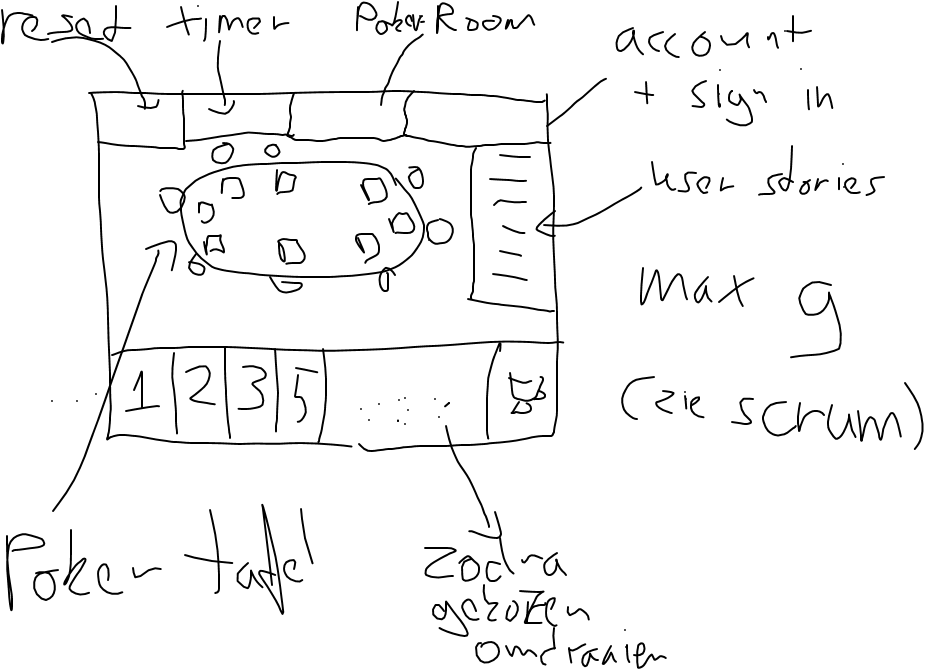 reset timer PokerRoom
account
+ sign in
user stories
max 9
(zie scrum)
1 2 3 5
Poker tafel
zodra
gekozen
omdraaien